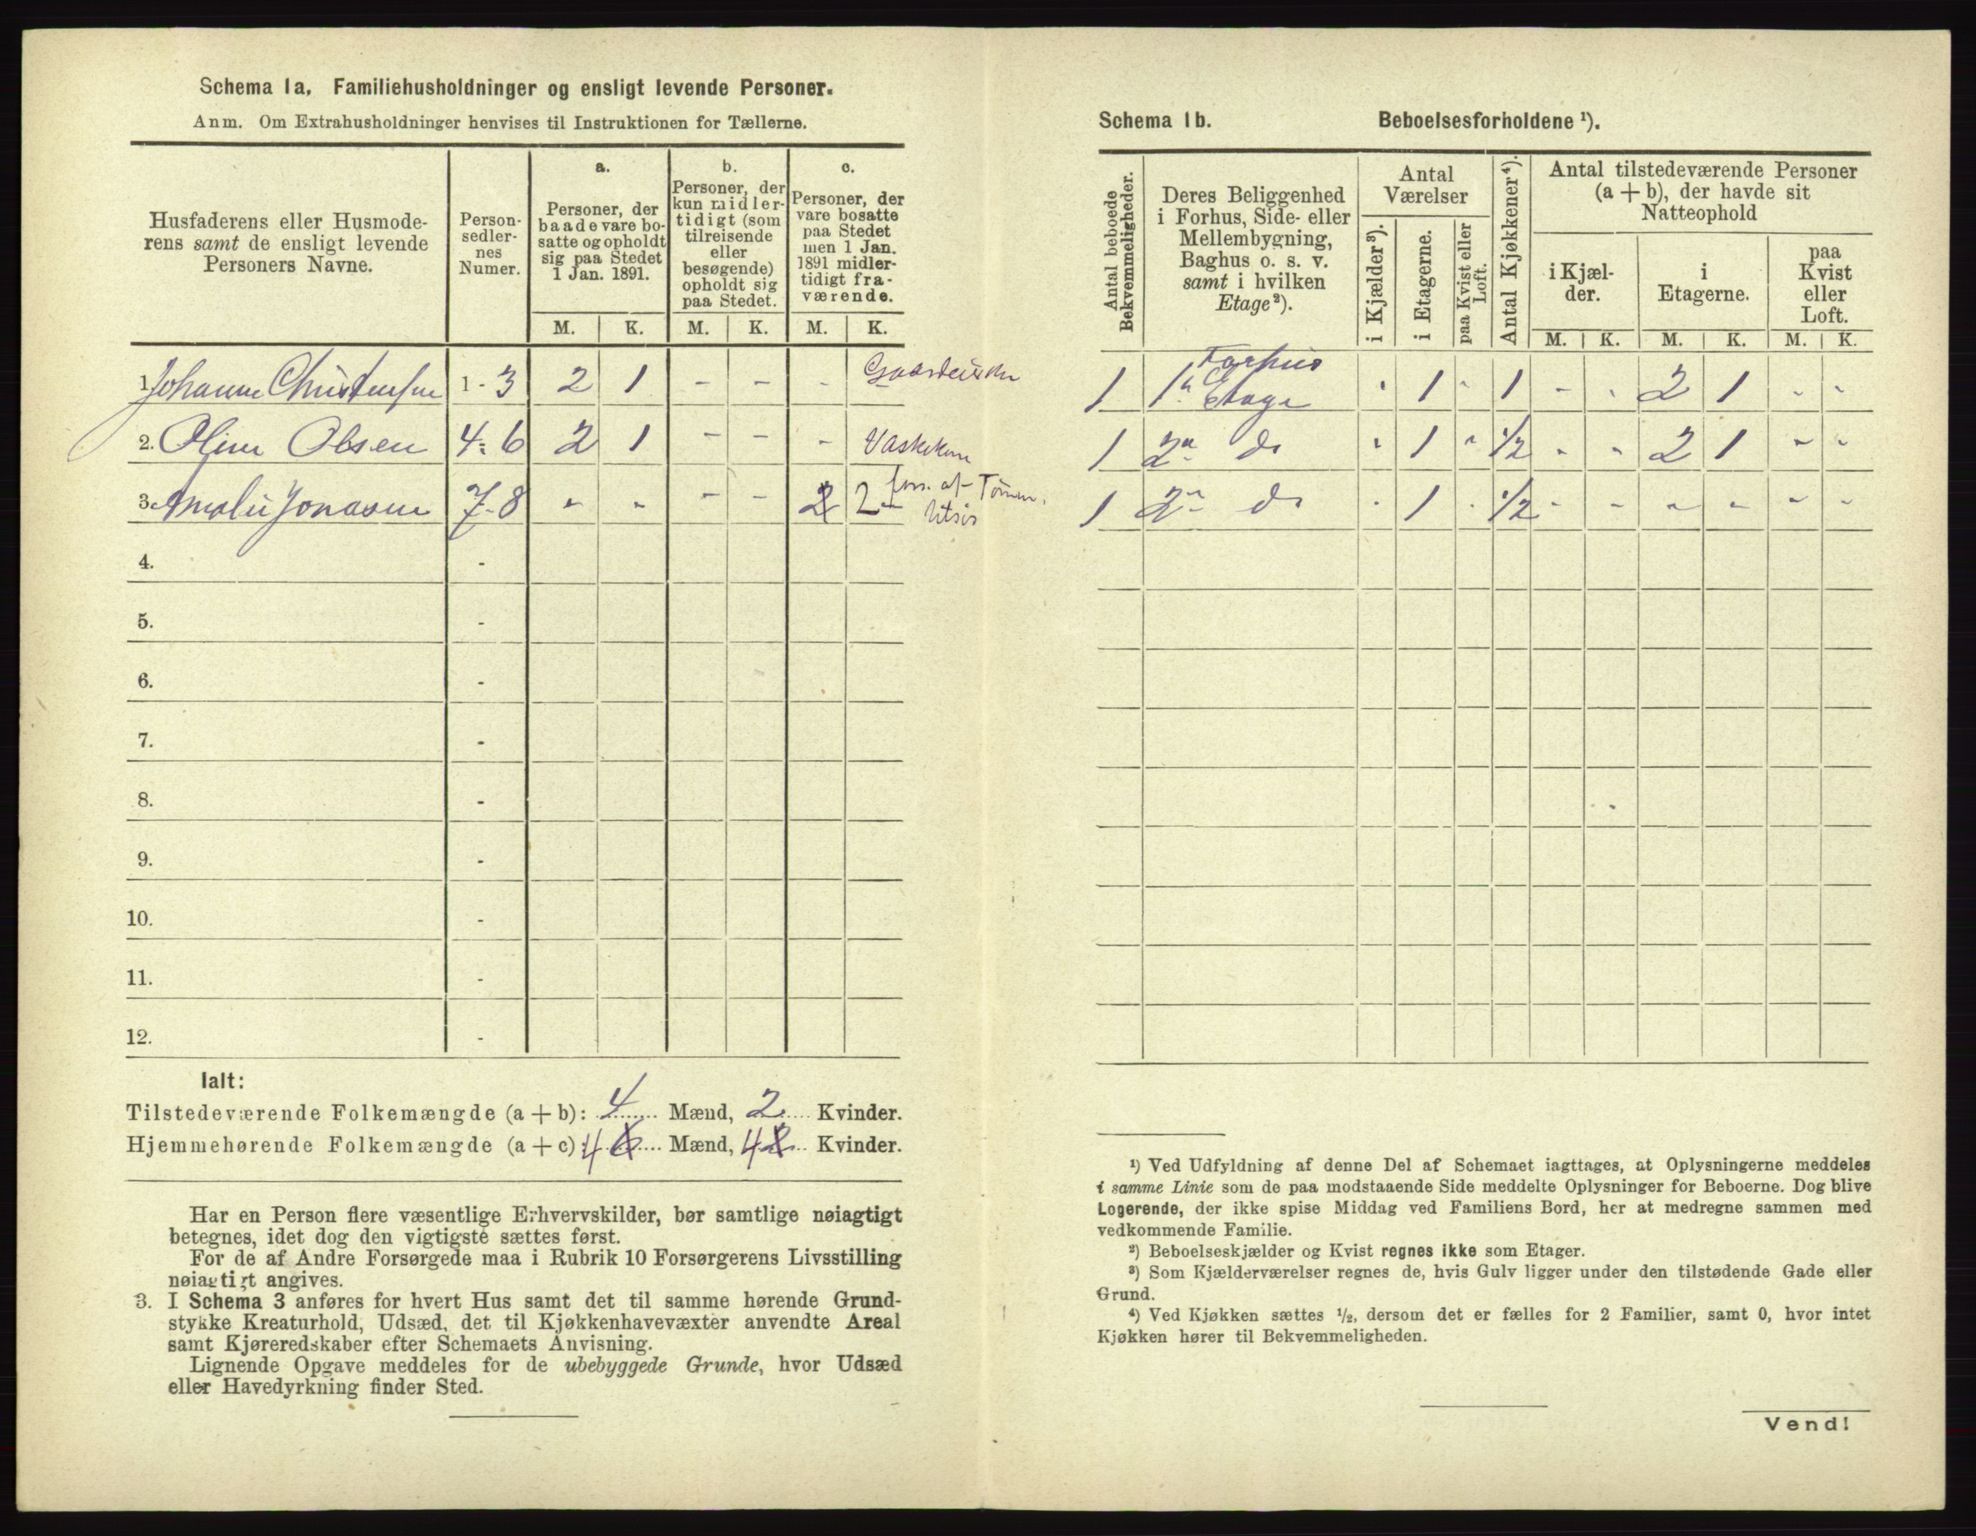 Schema 1a. Familiehusholdninger og ensligt levende Personer.
Anm. Om Extrahusholdninger henvises til Instruktionen for Tællerne.
Husfaderens eller Husmoderens samt de ensligt levende Personers Navne.
Personsedlernes Numer.
a.
Personer, der baade vare bosatte og opholdt sig paa Stedet 1 Jan. 1891.
b.
Personer, der kun midlertidigt (som tilreisende eller besøgende) opholdt sig paa Stedet.
c.
Personer, der vare bosatte paa Stedet men 1 Jan. 1891 midlertidigt fraværende.
M. K. M. K. M. K.
1. Johanne Christensen 1 - 3 2 1 - - -
2. Oline Olsen 4 - 6 2 1 - - - Vaskekone
3. Amalie Jonasen 7 - 8 - - - - 2 2 fors. af
4. -
5. -
6. -
7. -
8. -
9. -
10. -
11. -
12. -
Ialt:
Tilstedeværende Folkemængde (a + b): 4 Mænd, 2 Kvinder.
Hjemmehørende Folkemængde (a + c) 4 6 Mænd, 4 2 Kvinder.
Har en Person flere væsentlige Erhvervskilder, bør samtlige nøiagtigt
betegnes, idet dog den vigtigste sættes først.
For de af Andre Forsørgede maa i Rubrik 10 Forsørgerens Livsstilling
nøiagtigt angives.
3. I Schema 3 anføres for hvert Hus samt det til samme hørende Grund-
stykke Kreaturhold, Udsæd, det til Kjøkkenhavevæxter anvendte Areal
samt Kjøreredskaber efter Schemaets Anvisning.
Lignende Opgave meddeles for de ubebyggede Grunde, hvor Udsæd
eller Havedyrkning finder Sted.
Schema 1b. Beboelsesforholdene ¹).
Antal beboede Bekvemmeligheder.
Deres Beliggenhed i Forhus, Side- eller Mellembygning, Baghus o. s. v. samt i hvilken Etage²).
Antal Værelser
i Kjælder³).
i Etagerne.
paa Kvist eller Loft.
Antal Kjøkkener⁴).
Antal tilstedeværende Personer (a + b), der havde sit Natteophold
i Kjælder.
i Etagerne.
paa Kvist eller Loft.
M. K. M. K. M. K.
Forhus
1 1ste Etage - 1 - 1 - - 2 1 - -
1 2den do - 1 - 1/2 - - 2 1 - -
1 2den do - 1 - 1/2 - - - - - -
¹) Ved Udfyldning af denne Del af Schemaet iagttages, at Oplysningerne meddeles
i samme Linie som de paa modstaaende Side meddelte Oplysninger for Beboerne. Dog blive
Logerende, der ikke spise Middag ved Familiens Bord, her at medregne sammen med
vedkommende Familie.
²) Beboelseskjælder og Kvist regnes ikke som Etager.
³) Som Kjælderværelser regnes de, hvis Gulv ligger under den tilstødende Gade eller
Grund.
⁴) Ved Kjøkken sættes ½, dersom det er fælles for 2 Familier, samt 0, hvor intet
Kjøkken hører til Bekvemmeligheden.
Vend!